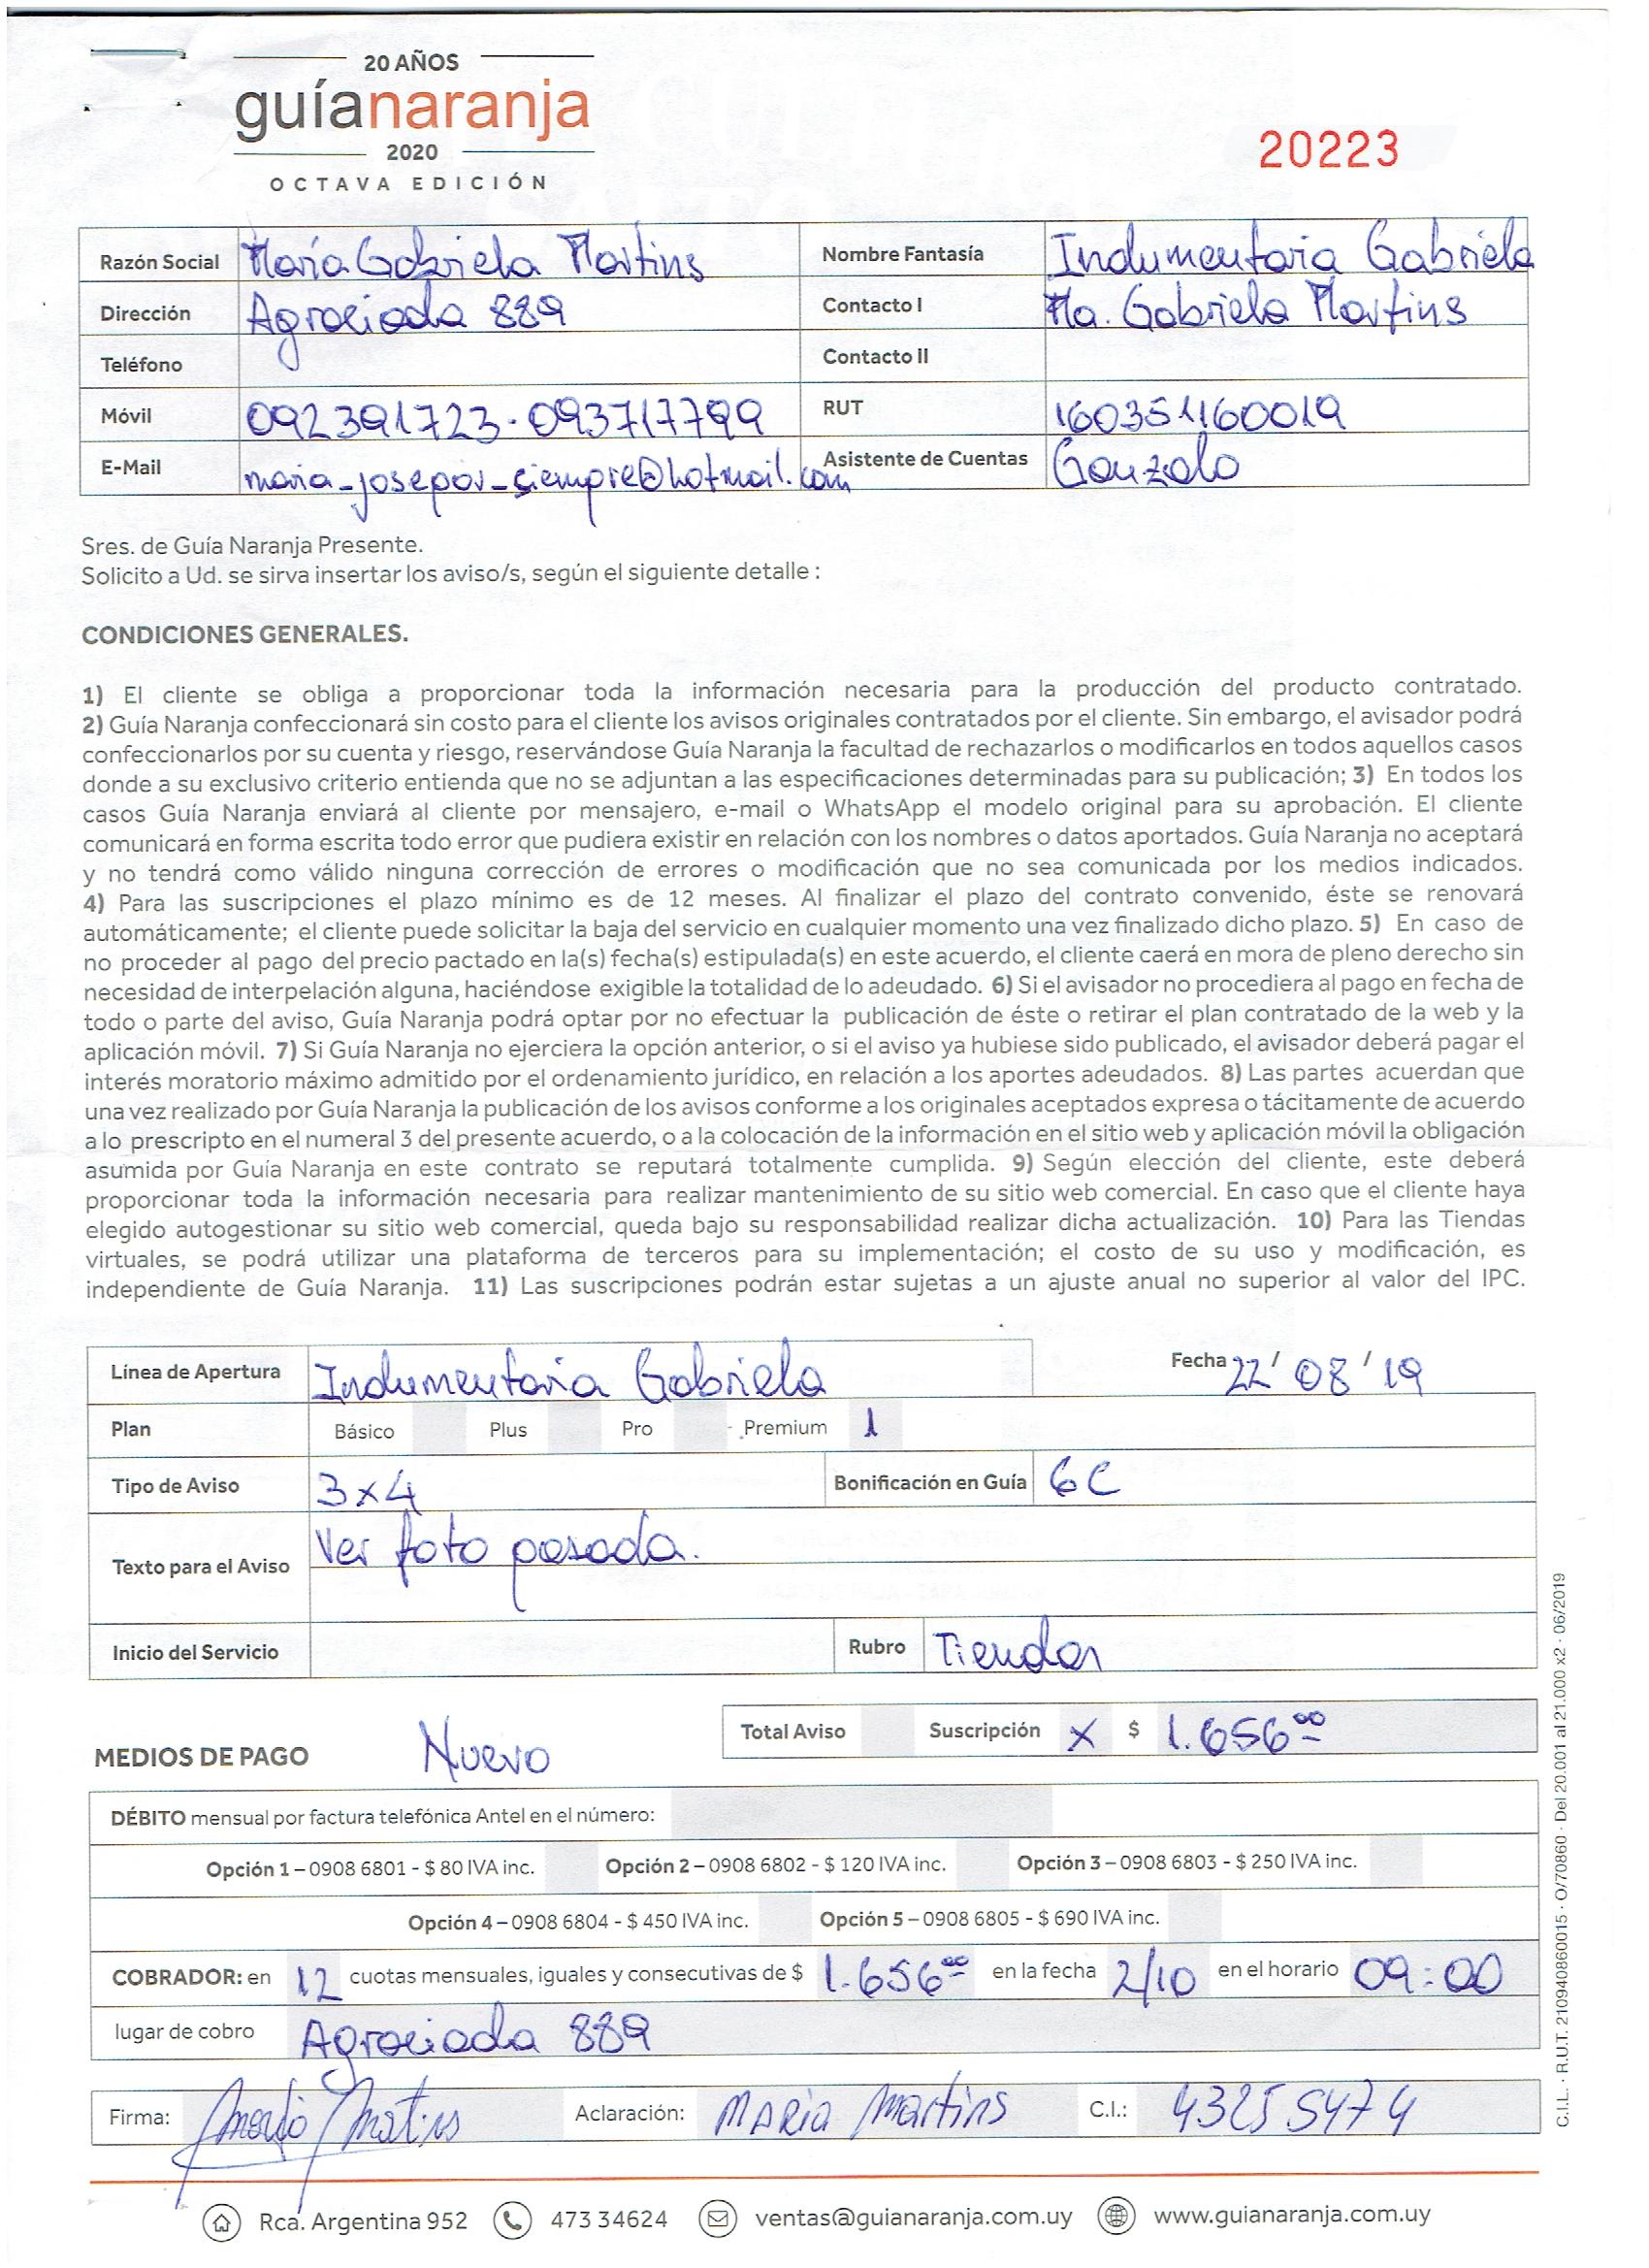 20 AÑOS
guíanaranja
2020
OCTAVA EDICIÓN
20223
Razón Social María Gabriela Martins Nombre Fantasía Indumentaria Gabriela
Dirección Agraciada 889 Contacto I Ma. Gabriela Martins
Teléfono Contacto II
Móvil 092391723 - 093717799 RUT 160351160019
E-Mail maria_josepor_siempre@hotmail.com Asistente de Cuentas Gonzalo
Sres. de Guía Naranja Presente.
Solicito a Ud. se sirva insertar los aviso/s, según el siguiente detalle :
CONDICIONES GENERALES.
1) El cliente se obliga a proporcionar toda la información necesaria para la producción del producto contratado.
2) Guía Naranja confeccionará sin costo para el cliente los avisos originales contratados por el cliente. Sin embargo, el avisador podrá
confeccionarlos por su cuenta y riesgo, reservándose Guía Naranja la facultad de rechazarlos o modificarlos en todos aquellos casos
donde a su exclusivo criterio entienda que no se adjuntan a las especificaciones determinadas para su publicación; 3) En todos los
casos Guía Naranja enviará al cliente por mensajero, e-mail o WhatsApp el modelo original para su aprobación. El cliente
comunicará en forma escrita todo error que pudiera existir en relación con los nombres o datos aportados. Guía Naranja no aceptará
y no tendrá como válido ninguna corrección de errores o modificación que no sea comunicada por los medios indicados.
4) Para las suscripciones el plazo mínimo es de 12 meses. Al finalizar el plazo del contrato convenido, éste se renovará
automáticamente; el cliente puede solicitar la baja del servicio en cualquier momento una vez finalizado dicho plazo. 5) En caso de
no proceder al pago del precio pactado en la(s) fecha(s) estipulada(s) en este acuerdo, el cliente caerá en mora de pleno derecho sin
necesidad de interpelación alguna, haciéndose exigible la totalidad de lo adeudado. 6) Si el avisador no procediera al pago en fecha de
todo o parte del aviso, Guía Naranja podrá optar por no efectuar la publicación de éste o retirar el plan contratado de la web y la
aplicación móvil. 7) Si Guía Naranja no ejerciera la opción anterior, o si el aviso ya hubiese sido publicado, el avisador deberá pagar el
interés moratorio máximo admitido por el ordenamiento jurídico, en relación a los aportes adeudados. 8) Las partes acuerdan que
una vez realizado por Guía Naranja la publicación de los avisos conforme a los originales aceptados expresa o tácitamente de acuerdo
a lo prescripto en el numeral 3 del presente acuerdo, o a la colocación de la información en el sitio web y aplicación móvil la obligación
asumida por Guía Naranja en este contrato se reputará totalmente cumplida. 9) Según elección del cliente, este deberá
proporcionar toda la información necesaria para realizar mantenimiento de su sitio web comercial. En caso que el cliente haya
elegido autogestionar su sitio web comercial, queda bajo su responsabilidad realizar dicha actualización. 10) Para las Tiendas
virtuales, se podrá utilizar una plataforma de terceros para su implementación; el costo de su uso y modificación, es
independiente de Guía Naranja. 11) Las suscripciones podrán estar sujetas a un ajuste anual no superior al valor del IPC.
Línea de Apertura Indumentaria Gabriela Fecha 22/08/19
Plan Básico Plus Pro Premium 1
Tipo de Aviso 3x4 Bonificación en Guía 6C
Texto para el Aviso Ver foto pasada.
Inicio del Servicio Rubro Tiendas
MEDIOS DE PAGO Nuevo Total Aviso Suscripción X $ 1.656 00
DÉBITO mensual por factura telefónica Antel en el número:
Opción 1 – 0908 6801 - $ 80 IVA inc. Opción 2 – 0908 6802 - $ 120 IVA inc. Opción 3 – 0908 6803 - $ 250 IVA inc.
Opción 4 – 0908 6804 - $ 450 IVA inc. Opción 5 – 0908 6805 - $ 690 IVA inc.
COBRADOR: en 12 cuotas mensuales, iguales y consecutivas de $ 1.656 00 en la fecha 2/10 en el horario 09:00
lugar de cobro Agraciada 889
Firma: Aclaración: Maria Martins C.I.: 43255474
C.I.L. · R.U.T. 210940860015 · O/70860 · Del 20.001 al 21.000 x2 · 06/2019
Rca. Argentina 952 473 34624 ventas@guianaranja.com.uy www.guianaranja.com.uy